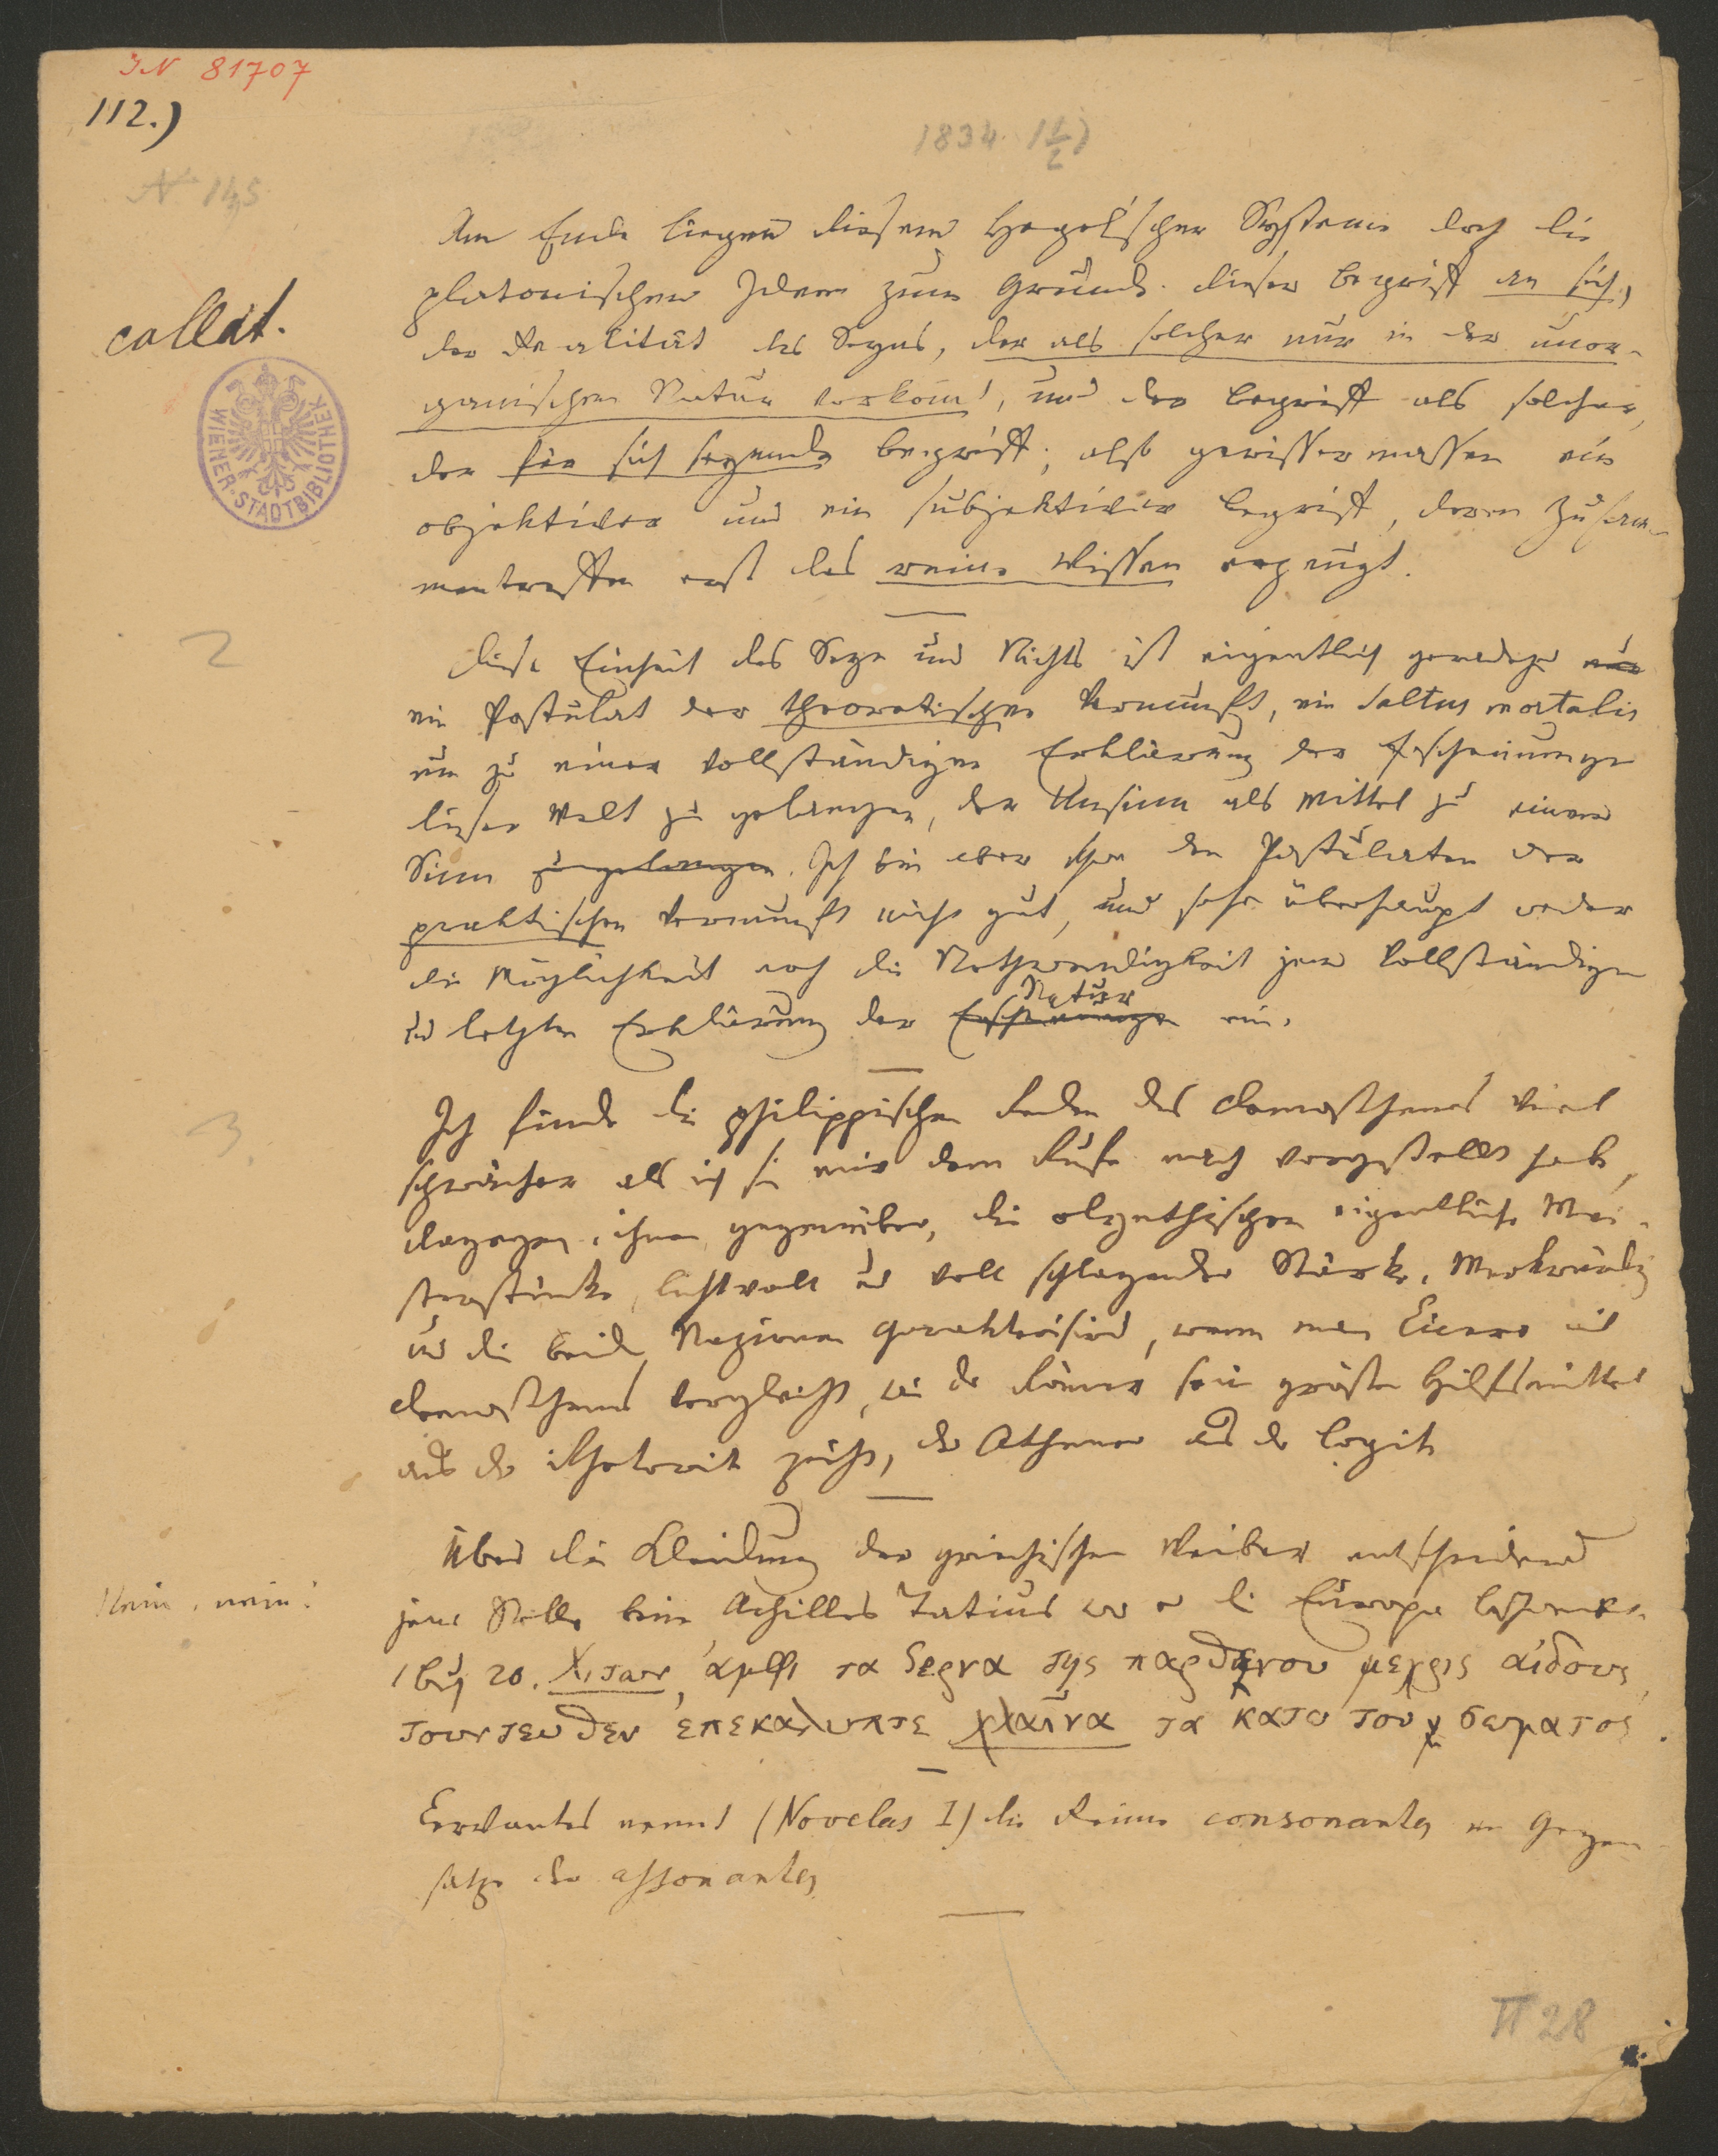 IN 81707
112.)
1834. (1/2)
N 145
Am Ende liegen diesem Hegel'schen Systeme doch die
platonischen Ideen zum Grunde. Dieser Begriff an sich,
collat.
der Realität des Seyns, der als solcher nur in der unor-
ganischen Natur vorkomt, und der Begriff als solcher,
der für sich seyende Begriff; also gewissermassen ein
objektiver und ein subjektiver Begriff, deren Zusam-
mentreffen erst das reine Wissen erzeugt.
WIENER STADTBIBLIOTHEK
2
Diese Einheit des Seyn und Nichts ist eigentlich geradezu nur
ein Postulat der theoretischen Vernunft, ein saltus mortalis
um zu einer vollständigen Erklärung der Erscheinungen
dieser Welt zu gelangen, der Unsinn als Mittel zu einem
Sinn zu gelangen. Ich bin aber schon den Postulaten der
praktischen Vernunft nicht gut, und sehe überhaupt weder
die Möglichkeit noch die Nothwendigkeit jener vollständigen
Natur
und letzten Erklärung der Erscheinungen ein.
3.
Ich finde die philippischen Reden des Demosthenes viel
schwächer als ich sie mir dem Rufe nach vorgestellt habe,
dagegen, ihnen gegenüber, die olynthischen eigentliche Mei-
sterstücke, lichtvoll und voll schlagender Stärke. Merkwürdig
und die beiden Nazionen charakterisirend, wenn man Cicero mit
Demosthenes vergleicht, wie der Römer seine größten Hilfsmittel
aus der Rhetorik zieht, der Athener aus der Logik
Über die Kleidung der griechischen Weiber entscheidend
Nein, nein!
jene Stelle beim Achilles Tatius wo er die Europa beschreibt.
Χιτων ἀμφι τα στερνα της παρθενου μεχρις αἰδους
τουντευθεν ἐπεκαλυπτε χλαῖνα τα κατω του σωματος.
Cervantes nennt (Novelas I) die Reime consonantes im Gegen-
satze der assonantes
II 28